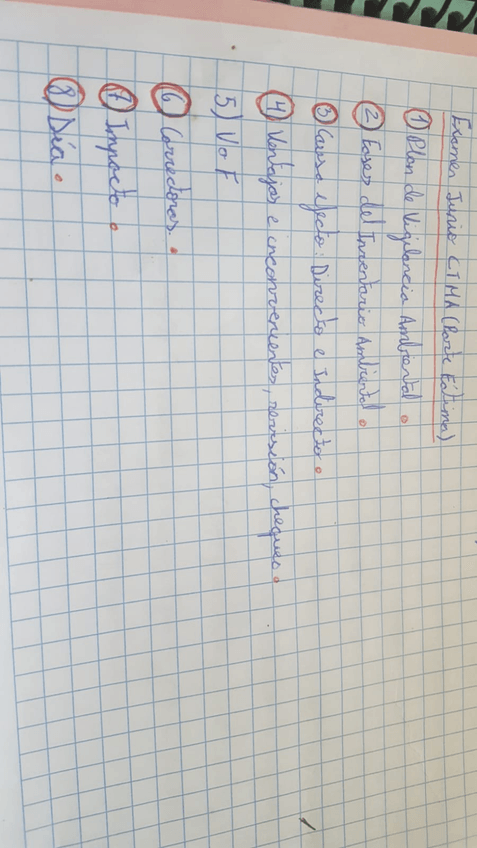 Examen Junio CTMA (Parte Fátima)
1) Plan de Vigilancia Ambiental.
2) Fases del Inventario Ambiental.
3) Causa efecto: Directo e Indirecto.
4) Ventajas e inconvenientes, revisión, chequeo.
5) V o F
6) Corredores.
7) Impacto.
8) Día.